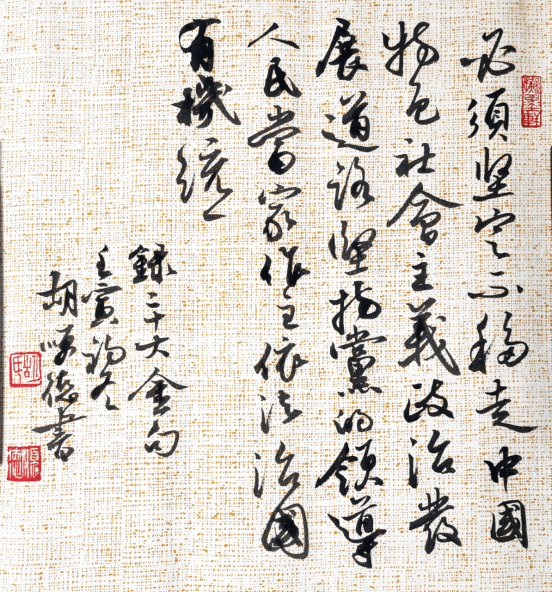 必须坚定不移走中國
特色社會主義政治發
展道路堅持黨的領導
人民當家作主依法治國
有機統一
録二十大金句
壬寅初冬
胡順德書